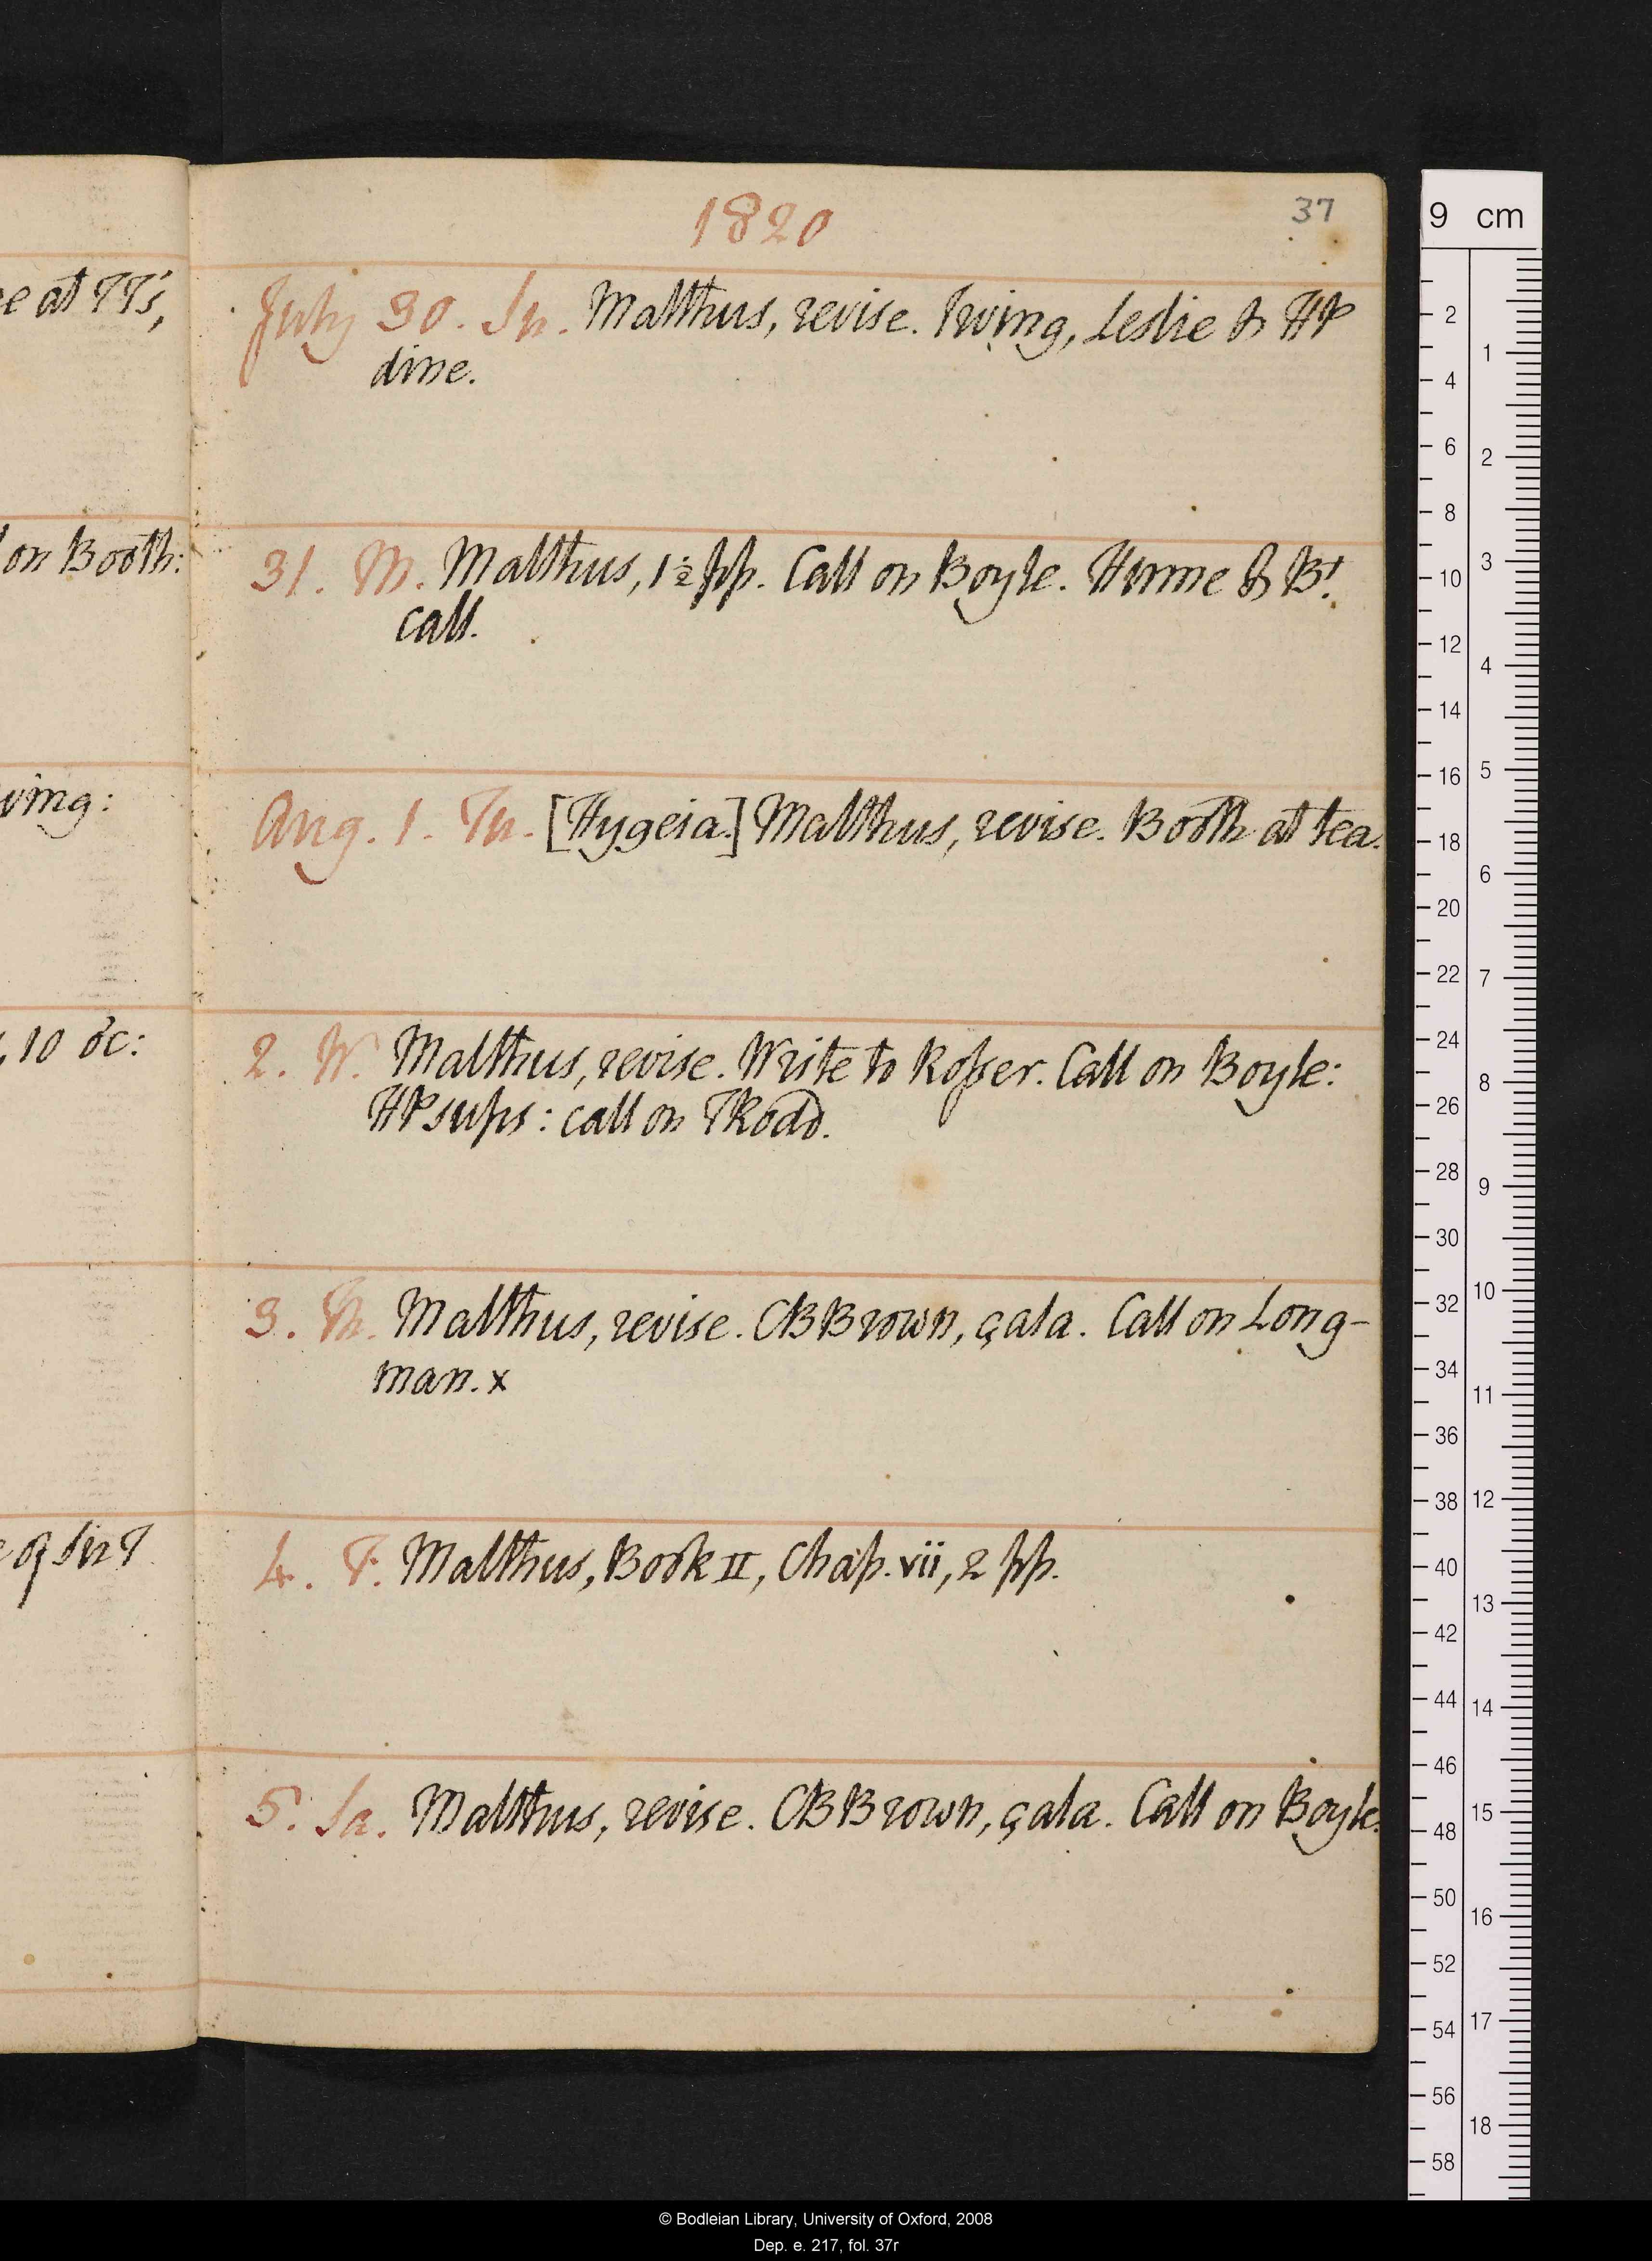 1820
37
July 30. Su. Malthus, revise. Irving, Leslie & HP
dine.
31. M. Malthus, 1½ pp. Call on Boyle. Hume & Bt
call.
Aug. 1. Tu. [Hygeia.] Malthus, revise. Booth at tea.
2. W. Malthus, revise. Write to Rosser. Call on Boyle:
HP sups: call on TRodd.
3. Th. Malthus, revise. CBBrown, çala. Call on Long-
man. x
4. F. Malthus, Book II, Chap. vii, 2 pp.
5. Sa. Malthus, revise. CBBrown, çala. Call on Boyle.
e at TT's,
on Booth:
ving:
, 10 o'c:
9 cm
2
4
6
8
10
12
14
16
18
20
22
24
26
28
30
32
34
36
38
40
42
44
46
48
50
52
54
56
58
1
2
3
4
5
6
7
8
9
10
11
12
13
14
15
16
17
18
© Bodleian Library, University of Oxford, 2008
Dep. e. 217, fol. 37r